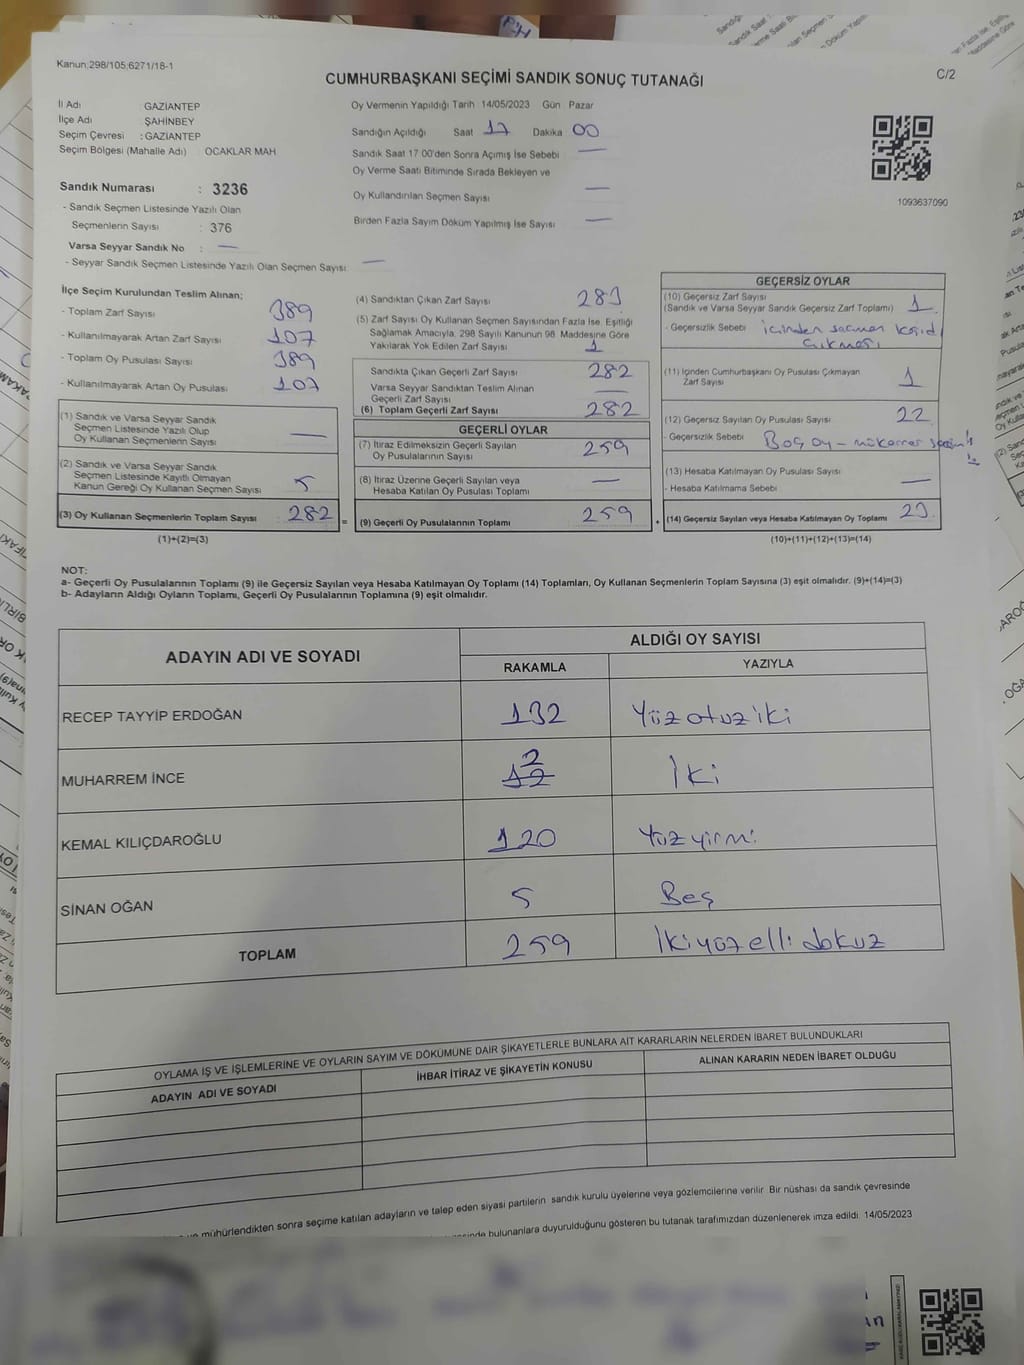 Kanun;298/105;6271/18-1
CUMHURBAŞKANI SEÇİMİ SANDIK SONUÇ TUTANAĞI
C/2
İl Adı GAZİANTEP
İlçe Adı ŞAHİNBEY
Seçim Çevresi : GAZİANTEP
Seçim Bölgesi (Mahalle Adı) OCAKLAR MAH
Sandık Numarası : 3236
- Sandık Seçmen Listesinde Yazılı Olan
Seçmenlerin Sayısı : 376
Varsa Seyyar Sandık No : —
- Seyyar Sandık Seçmen Listesinde Yazılı Olan Seçmen Sayısı: —
Oy Vermenin Yapıldığı Tarih 14/05/2023 Gün Pazar
Sandığın Açıldığı Saat 17 Dakika 00
Sandık Saat 17 00'den Sonra Açımış İse Sebebi —
Oy Verme Saati Bitiminde Sırada Bekleyen ve
Oy Kullandırılan Seçmen Sayısı —
Birden Fazla Sayım Döküm Yapılmış İse Sayısı —
1093637090
İlçe Seçim Kurulundan Teslim Alınan;
- Toplam Zarf Sayısı 389
- Kullanılmayarak Artan Zarf Sayısı 107
- Toplam Oy Pusulası Sayısı 389
- Kullanılmayarak Artan Oy Pusulası 107
(1) Sandık ve Varsa Seyyar Sandık
Seçmen Listesinde Yazılı Olup
Oy Kullanan Seçmenlerin Sayısı —
(2) Sandık ve Varsa Seyyar Sandık
Seçmen Listesinde Kayıtlı Olmayan
Kanun Gereği Oy Kullanan Seçmen Sayısı 5
(3) Oy Kullanan Seçmenlerin Toplam Sayısı 282 =
(1)+(2)=(3)
(4) Sandıktan Çıkan Zarf Sayısı 283
(5) Zarf Sayısı Oy Kullanan Seçmen Sayısından Fazla İse, Eşitliği
Sağlamak Amacıyla, 298 Sayılı Kanunun 98. Maddesine Göre
Yakılarak Yok Edilen Zarf Sayısı 1
Sandıkta Çıkan Geçerli Zarf Sayısı 282
Varsa Seyyar Sandıktan Teslim Alınan
Geçerli Zarf Sayısı —
(6) Toplam Geçerli Zarf Sayısı 282
GEÇERLİ OYLAR
(7) İtiraz Edilmeksizin Geçerli Sayılan
Oy Pusulalarının Sayısı 259
(8) İtiraz Üzerine Geçerli Sayılan veya
Hesaba Katılan Oy Pusulası Toplamı —
(9) Geçerli Oy Pusulalarının Toplamı 259 +
GEÇERSİZ OYLAR
(10) Geçersiz Zarf Sayısı
(Sandık ve Varsa Seyyar Sandık Geçersiz Zarf Toplamı) 1
- Geçersizlik Sebebi içinden saçman kağıd
çıkması
(11) İçinden Cumhurbaşkanı Oy Pusulası Çıkmayan
Zarf Sayısı 1
(12) Geçersiz Sayılan Oy Pusulası Sayısı 22
- Geçersizlik Sebebi Boş oy - mükerrer
(13) Hesaba Katılmayan Oy Pusulası Sayısı —
- Hesaba Katılmama Sebebi
(14) Geçersiz Sayılan veya Hesaba Katılmayan Oy Toplamı 23
(10)+(11)+(12)+(13)=(14)
NOT:
a- Geçerli Oy Pusulalarının Toplamı (9) ile Geçersiz Sayılan veya Hesaba Katılmayan Oy Toplamı (14) Toplamları, Oy Kullanan Seçmenlerin Toplam Sayısına (3) eşit olmalıdır. (9)+(14)=(3)
b- Adayların Aldığı Oyların Toplamı, Geçerli Oy Pusulalarının Toplamına (9) eşit olmalıdır.
ADAYIN ADI VE SOYADI
ALDIĞI OY SAYISI
RAKAMLA YAZIYLA
RECEP TAYYİP ERDOĞAN 132 Yüzotuziki
MUHARREM İNCE 12 2 İki
KEMAL KILIÇDAROĞLU 120 Yüzyirmi
SİNAN OĞAN 5 Beş
TOPLAM 259 İkiyüzellidokuz
OYLAMA İŞ VE İŞLEMLERİNE VE OYLARIN SAYIM VE DÖKÜMÜNE DAİR ŞİKAYETLERLE BUNLARA AİT KARARLARIN NELERDEN İBARET BULUNDUKLARI
ADAYIN ADI VE SOYADI İHBAR İTİRAZ VE ŞİKAYETİN KONUSU ALINAN KARARIN NEDEN İBARET OLDUĞU
mühürlendikten sonra seçime katılan adayların ve talep eden siyasi partilerin sandık kurulu üyelerine veya gözlemcilerine verilir Bir nüshası da sandık çevresinde
bulunanlara duyurulduğunu gösteren bu tutanak tarafımızdan düzenlenerek imza edildi. 14/05/2023